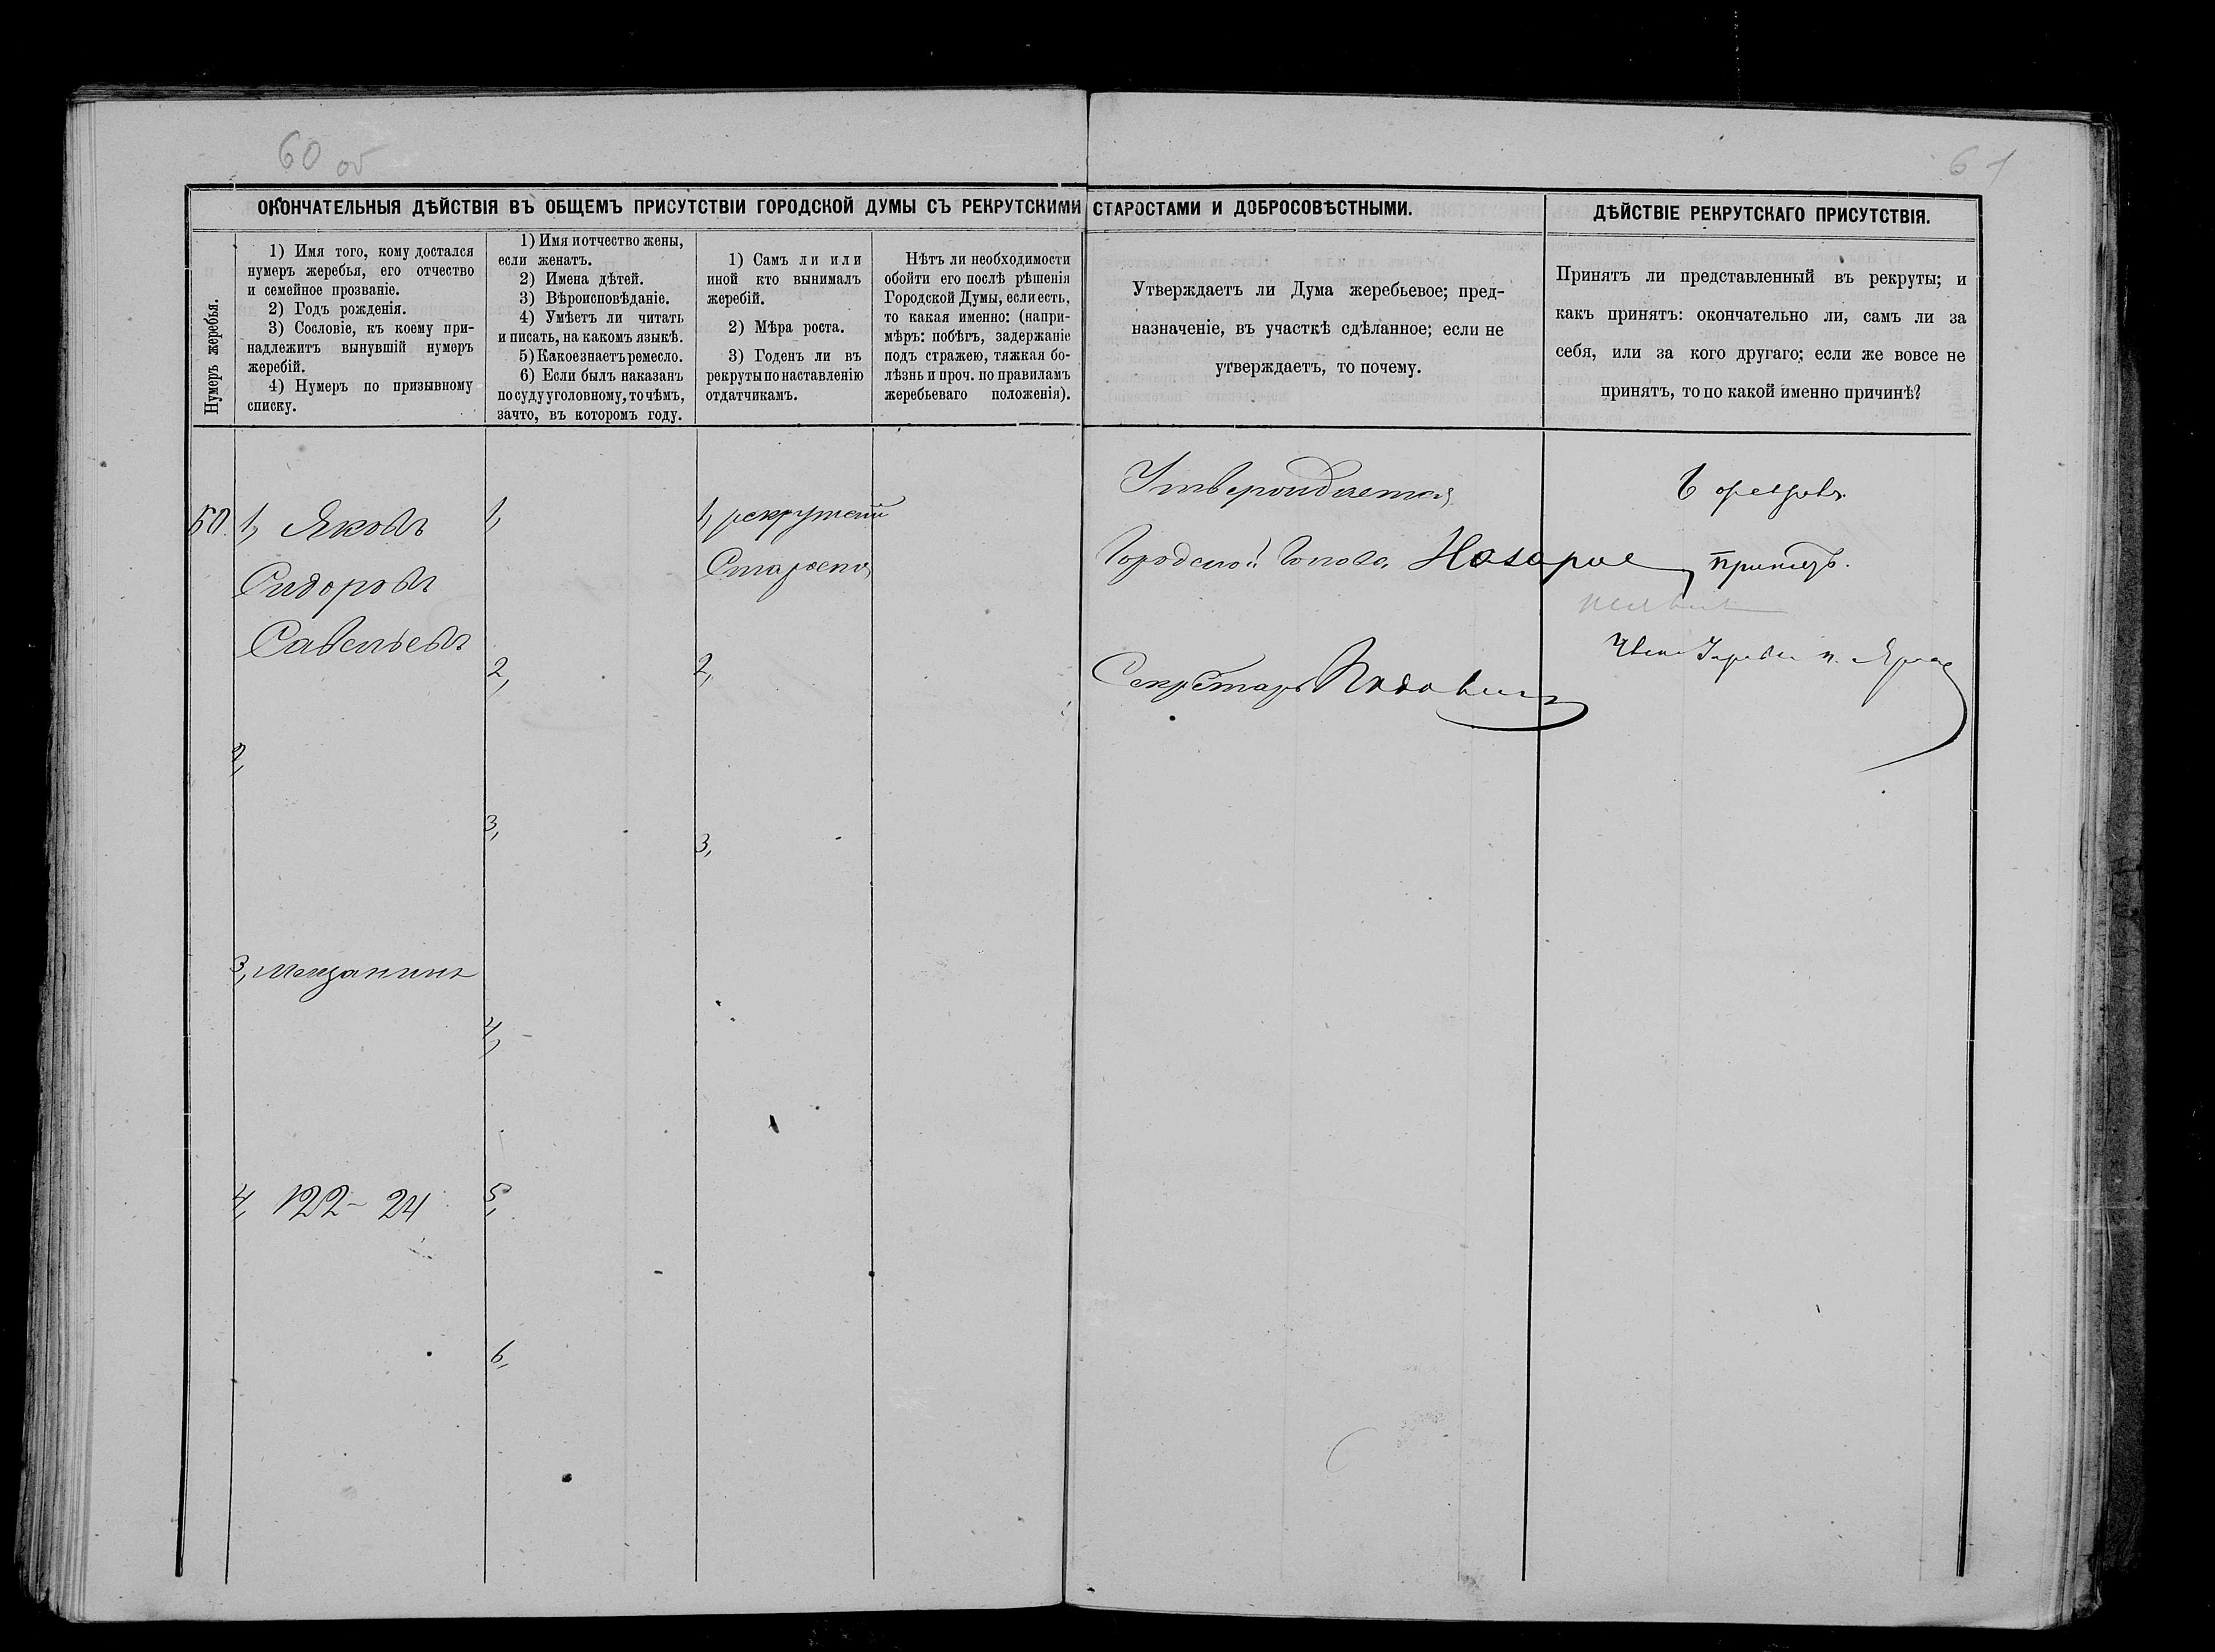 60 об
61
ОКОНЧАТЕЛЬНЫЯ ДѢЙСТВІЯ ВЪ ОБЩЕМЪ ПРИСУТСТВІИ ГОРОДСКОЙ ДУМЫ СЪ РЕКРУТСКИМИ СТАРОСТАМИ И ДОБРОСОВѢСТНЫМИ.
ДѢЙСТВІЕ РЕКРУТСКАГО ПРИСУТСТВІЯ.
Нумеръ жеребья.
1) Имя того, кому достался
нумеръ жеребья, его отчество
и семейное прозваніе.
2) Годъ рожденія.
3) Сословіе, къ коему при-
надлежитъ вынувшій нумеръ
жеребій.
4) Нумеръ по призывному
списку.
1) Имя и отчество жены,
если женатъ.
2) Имена дѣтей.
3) Вѣроисповѣданіе.
4) Умѣетъ ли читать
и писать, на какомъ языкѣ.
5) Какое знаетъ ремесло.
6) Если былъ наказанъ
по суду уголовному, то чѣмъ,
за что, въ которомъ году.
1) Самъ ли или
иной кто вынималъ
жеребій.
2) Мѣра роста.
3) Годенъ ли въ
рекруты по наставленію
отдатчикамъ.
Нѣтъ ли необходимости
обойти его послѣ рѣшенія
Городской Думы, если есть,
то какая именно: (напри-
мѣръ: побѣгъ, задержаніе
подъ стражею, тяжкая бо-
лѣзнь и проч. по правиламъ
жеребьеваго положенія).
Утверждаетъ ли Дума жеребьевое; пред-
назначеніе, въ участкѣ сдѣланное; если не
утверждаетъ, то почему.
Принятъ ли представленный въ рекруты; и
какъ принятъ: окончательно ли, самъ ли за
себя, или за кого другаго; если же вовсе не
принятъ, то по какой именно причинѣ?
50.
1, Яковъ
Сидоровъ
Савельевъ
2,
3, мещанинъ
4, 122 - 24
1,
2,
3,
4,
5,
6,
1, рекрутский
Староста
2,
3,
Утверждается
Городской Голова
Секретарь